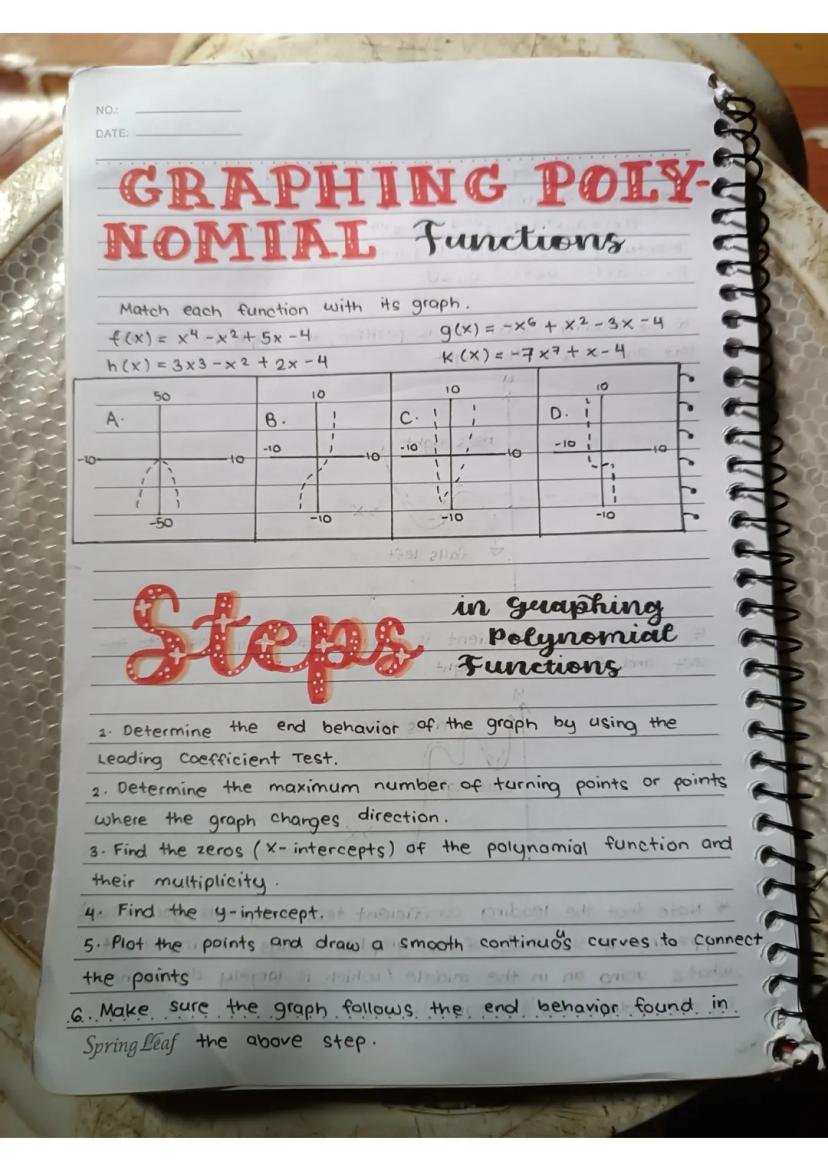 NO.:
DATE:
GRAPHING POLY-
NOMIAL Functions
Match each function with its graph.
f(x) = x⁴ - x² + 5x - 4
g(x) = -x⁶ + x² - 3x - 4
h(x) = 3x3 - x² + 2x - 4
k(x) = -7x⁷ + x - 4
A.
50
-10
10
-50
B.
10
-10
10
-10
C.
10
-10
10
-10
D.
10
-10
10
-10
Steps
in Graphing
Polynomial
Functions
1. Determine the end behavior of the graph by using the
Leading Coefficient Test.
2. Determine the maximum number of turning points or points
where the graph changes direction.
3. Find the zeros (x-intercepts) of the polynomial function and
their multiplicity.
4. Find the y-intercept.
5. Plot the points and draw a smooth continuous curves to connect
the points
6. Make sure the graph follows the end behavior found in
Spring Leaf the above step.